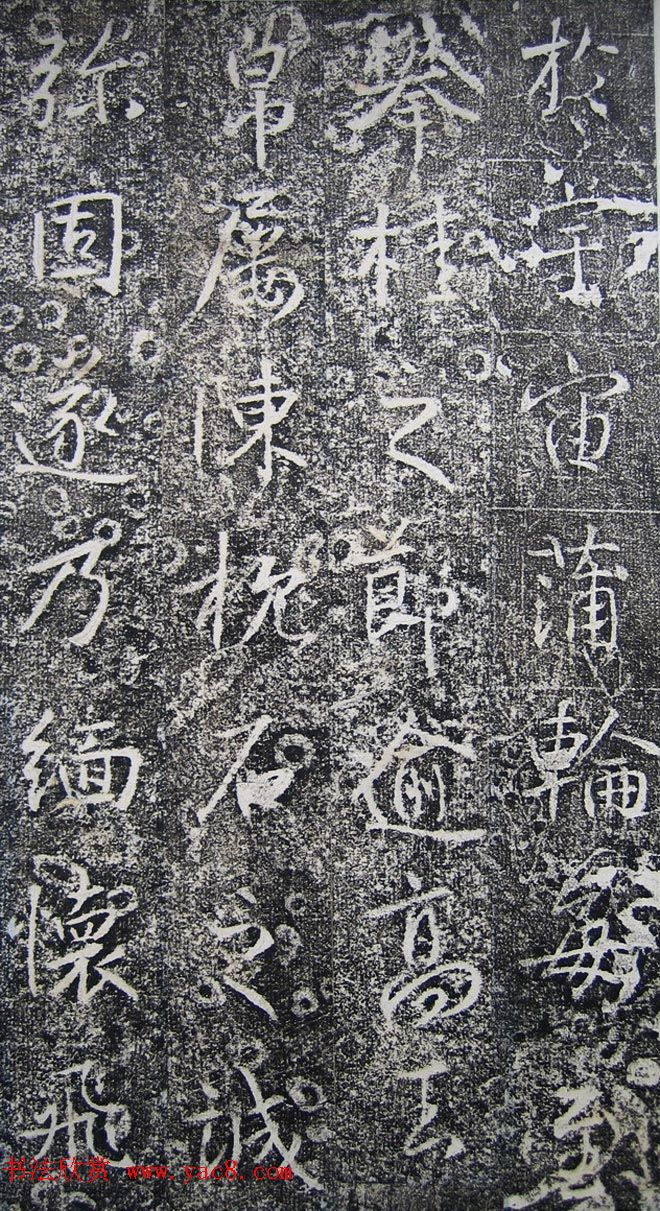 於宙蒲輪至
攀桂之節逾高玉
帛屢陳枕石之誠
弥固遂乃緬懷飛
书法欣赏 www.yac8.com